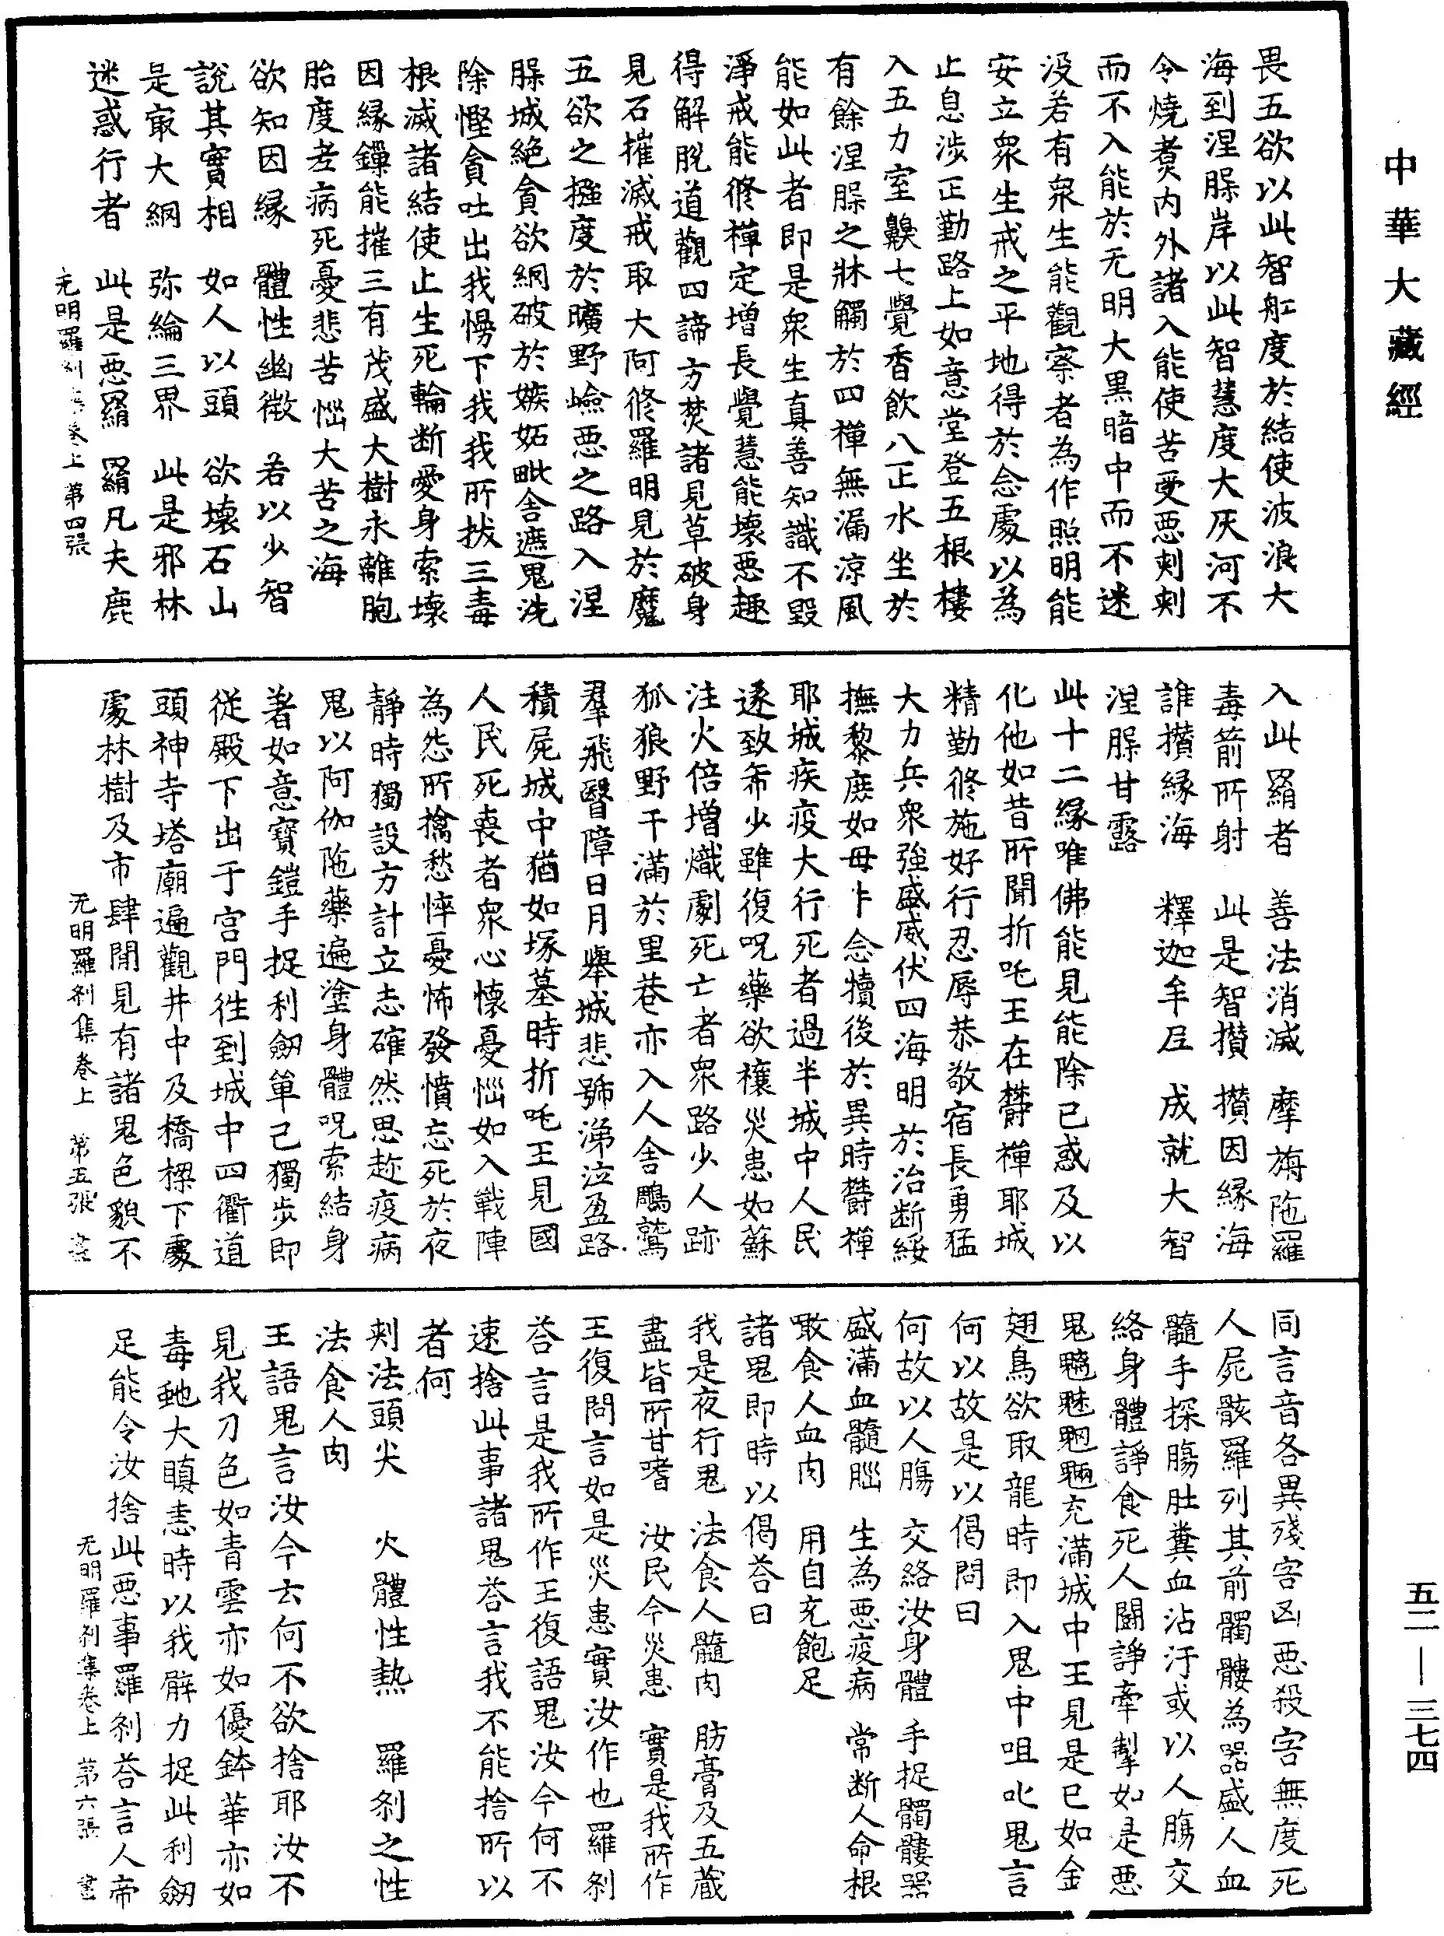 中華大藏經
畏五欲以此智舡度於結使波浪大
海到涅脵岸以此智慧度大灰河不
令燒煑内外諸入能使苦受惡刺刺
而不入能於无明大黑暗中而不迷
没若有衆生能觀察者為作照明能
安立衆生戒之平地得於念處以為
止息涉正勤路上如意堂登五根樓
入五力室齅七覺香飲八正水坐於
有餘涅脵之牀觸於四禪無漏涼風
能如此者即是衆生真善知識不毀
淨戒能修禪定增長覺慧能壞惡趣
得解脱道觀四諦方焚諸見草破身
見石摧滅戒取大阿修羅明見於魔
五欲之撾度於曠野嶮惡之路入涅
脵城絶貪欲網破於嫉妬毗舍遮鬼洗
除慳貪吐出我慢下我我所拔三毒
根滅諸結使止生死輪斷愛身索壞
因緣鏁能摧三有茂盛大樹永離胞
胎度老病死憂悲苦惱大苦之海
欲知因緣　體性幽微　若以少智
說其實相　如人以頭　欲壞石山
是㝡大網　弥綸三界　此是邪林
迷惑行者　此是惡羂　羂凡夫鹿
无明羅刹集卷上　第四張
入此羂者　善法消滅　摩旃陁羅
毒箭所射　此是智攢　攢因緣海
誰攢緣海　釋迦牟尼　成就大智
涅脵甘露
此十二緣唯佛能見能除已惑及以
化他如昔所聞折吒王在欝禪耶城
精勤修施好行忍辱恭敬宿長勇猛
大力兵衆強盛威伏四海明於治斷綏
撫黎庶如母牛念犢後於異時欝禪
耶城疾疫大行死者過半城中人民
遂致希少雖復呪藥欲禳災患如蘇
注火倍增熾劇死亡者衆路少人跡
狐狼野干滿於里巷亦入人舍鵰鷲
羣飛翳障日月舉城悲號涕泣盈路
積屍城中猶如塚墓時折吒王見國
人民死喪者衆心懷憂惱如入戰陣
為怨所擒愁悴憂怖發憤忘死於夜
靜時獨設方計立志確然思趂疫病
鬼以阿伽陁藥遍塗身體呪索結身
著如意寶鎧手捉利劒單己獨步即
從殿下出于宮門往到城中四衢道
頭神寺塔廟遍觀井中及橋樑下處
處林樹及市肆間見有諸鬼色貌不
无明羅刹集卷上　第五張
同言音各異殘害凶惡殺害無度死
人屍骸羅列其前髑髏為器盛人血
髓手探腸肚糞血沾汙或以人腸交
絡身體諍食死人鬪諍牽掣如是惡
鬼魑魅魍魎充滿城中王見是已如金
翅鳥欲取龍時即入鬼中咀叱鬼言
何以故是以偈問曰
何故以人腸　交絡汝身體　手捉髑髏器
盛滿血髓腦　生為惡疫病　常斷人命根
噉食人血肉　用自充飽足
諸鬼即時以偈荅曰
我是夜行鬼　法食人髓肉　肪膏及五藏
盡皆所甘嗜　汝民今災患　實是我所作
王復問言如是災患實汝作也羅刹
荅言是我所作王復語鬼汝今何不
速捨此事諸鬼荅言我不能捨所以
者何
刺法頭尖　火體性熱　羅刹之性
法食人肉
王語鬼言汝今云何不欲捨耶汝不
見我刀色如青雲亦如優鉢華亦如
毒虵大瞋恚時以我臂力捉此利劒
足能令汝捨此惡事羅刹荅言人帝
无明羅刹集卷上　第六張
五二—三七四